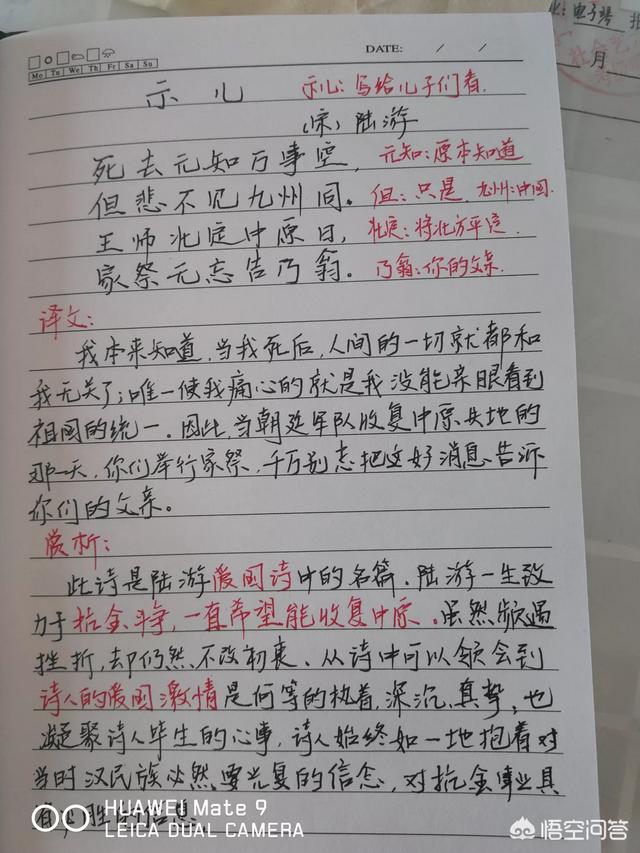 电子琴
月
DATE: / /
Mo Tu We Th Fr Sa Su
示儿 示儿:写给儿子们看.
(宋)陆游
死去元知万事空, 元知:原本知道
但悲不见九州同。但:只是 九州:中国.
王师北定中原日, 北定:将北方平定.
家祭无忘告乃翁。乃翁:你的父亲.
译文:
我本来知道,当我死后,人间的一切就都和
我无关了;唯一使我痛心的就是我没能亲眼看到
祖国的统一。因此,当朝廷军队收复中原失地的
那一天,你们举行家祭,千万别忘把这好消息告诉
你们的父亲。
赏析:
此诗是陆游爱国诗中的名篇。陆游一生致
力于抗金斗争,一直希望能收复中原。虽然频遇
挫折,却仍然不改初衷。从诗中可以领会到
诗人的爱国激情是何等的执着、深沉、真挚,也
凝聚诗人毕生的心事,诗人始终如一地抱着对
当时汉民族必然要光复的信念,对抗金事业具
有
HUAWEI Mate 9
LEICA DUAL CAMERA
悟空问答